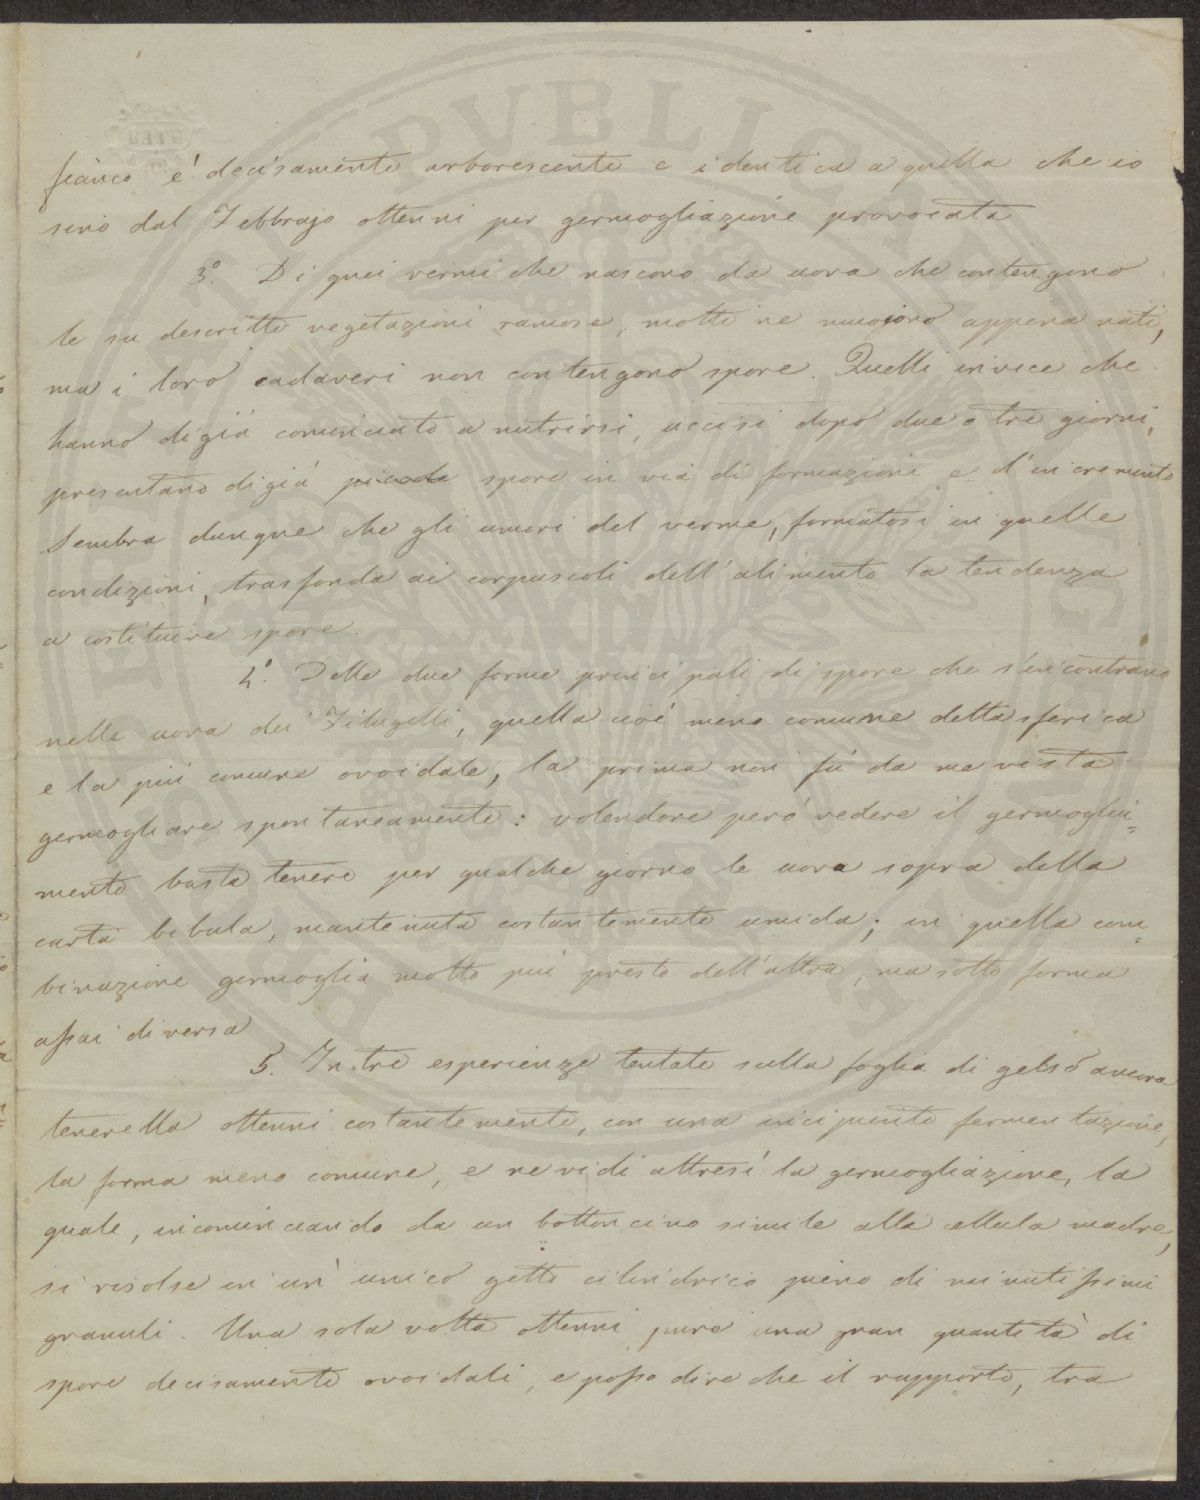 fianco é decisamente arborescente e identica a quella che io
sino dal Febbrajo ottenni per germogliazione provocata
3.° Di quei vermi che nascono da uova che contengono
le su descritte vegetazioni ramose, molti ne muojono appena nati,
ma i loro cadaveri non contengono spore. Quelli invece che
hanno digiá cominciato a nutrirsi, uccisi dopo due o tre giorni,
presentano digiá piccole spore in via di formazione e d'incremento
Sembra dunque che gli umori del verme, formatosi in quelle
condizioni, trasfonda ai corpuscoli dell'alimento la tendenza
a costituire spore.
4.° Delle due forme principali di spore che s'incontrano
nelle uova dei Filugelli, quella cioé meno comune detta sferica
e la piú comune ovoidale, la prima non fú da me vista
germogliare spontaneamente: volendone peró vedere il germoglia=
mento basta tenere per qualche giorno le uova sopra della
carta bibula, mantenuta costantemente umida; in quella com=
binazione germoglia molto piú presto dell'altra, ma sotto forma
assai diversa
5. In tre esperienze tentate sulla foglia di gelso ancora
tenerella ottenni costantemente, con una incipiente fermentazione,
la forma meno comune, e ne vidi altresí la germogliazione, la
quale, incominciando da un bottoncino simile alla cellula madre,
si risolse in un' unico getto cilindrico pieno di minutissimi
granuli. Una sola volta ottenni pure una gran quantità di
spore decisamente ovoidali, e posso dire che il rapporto, tra